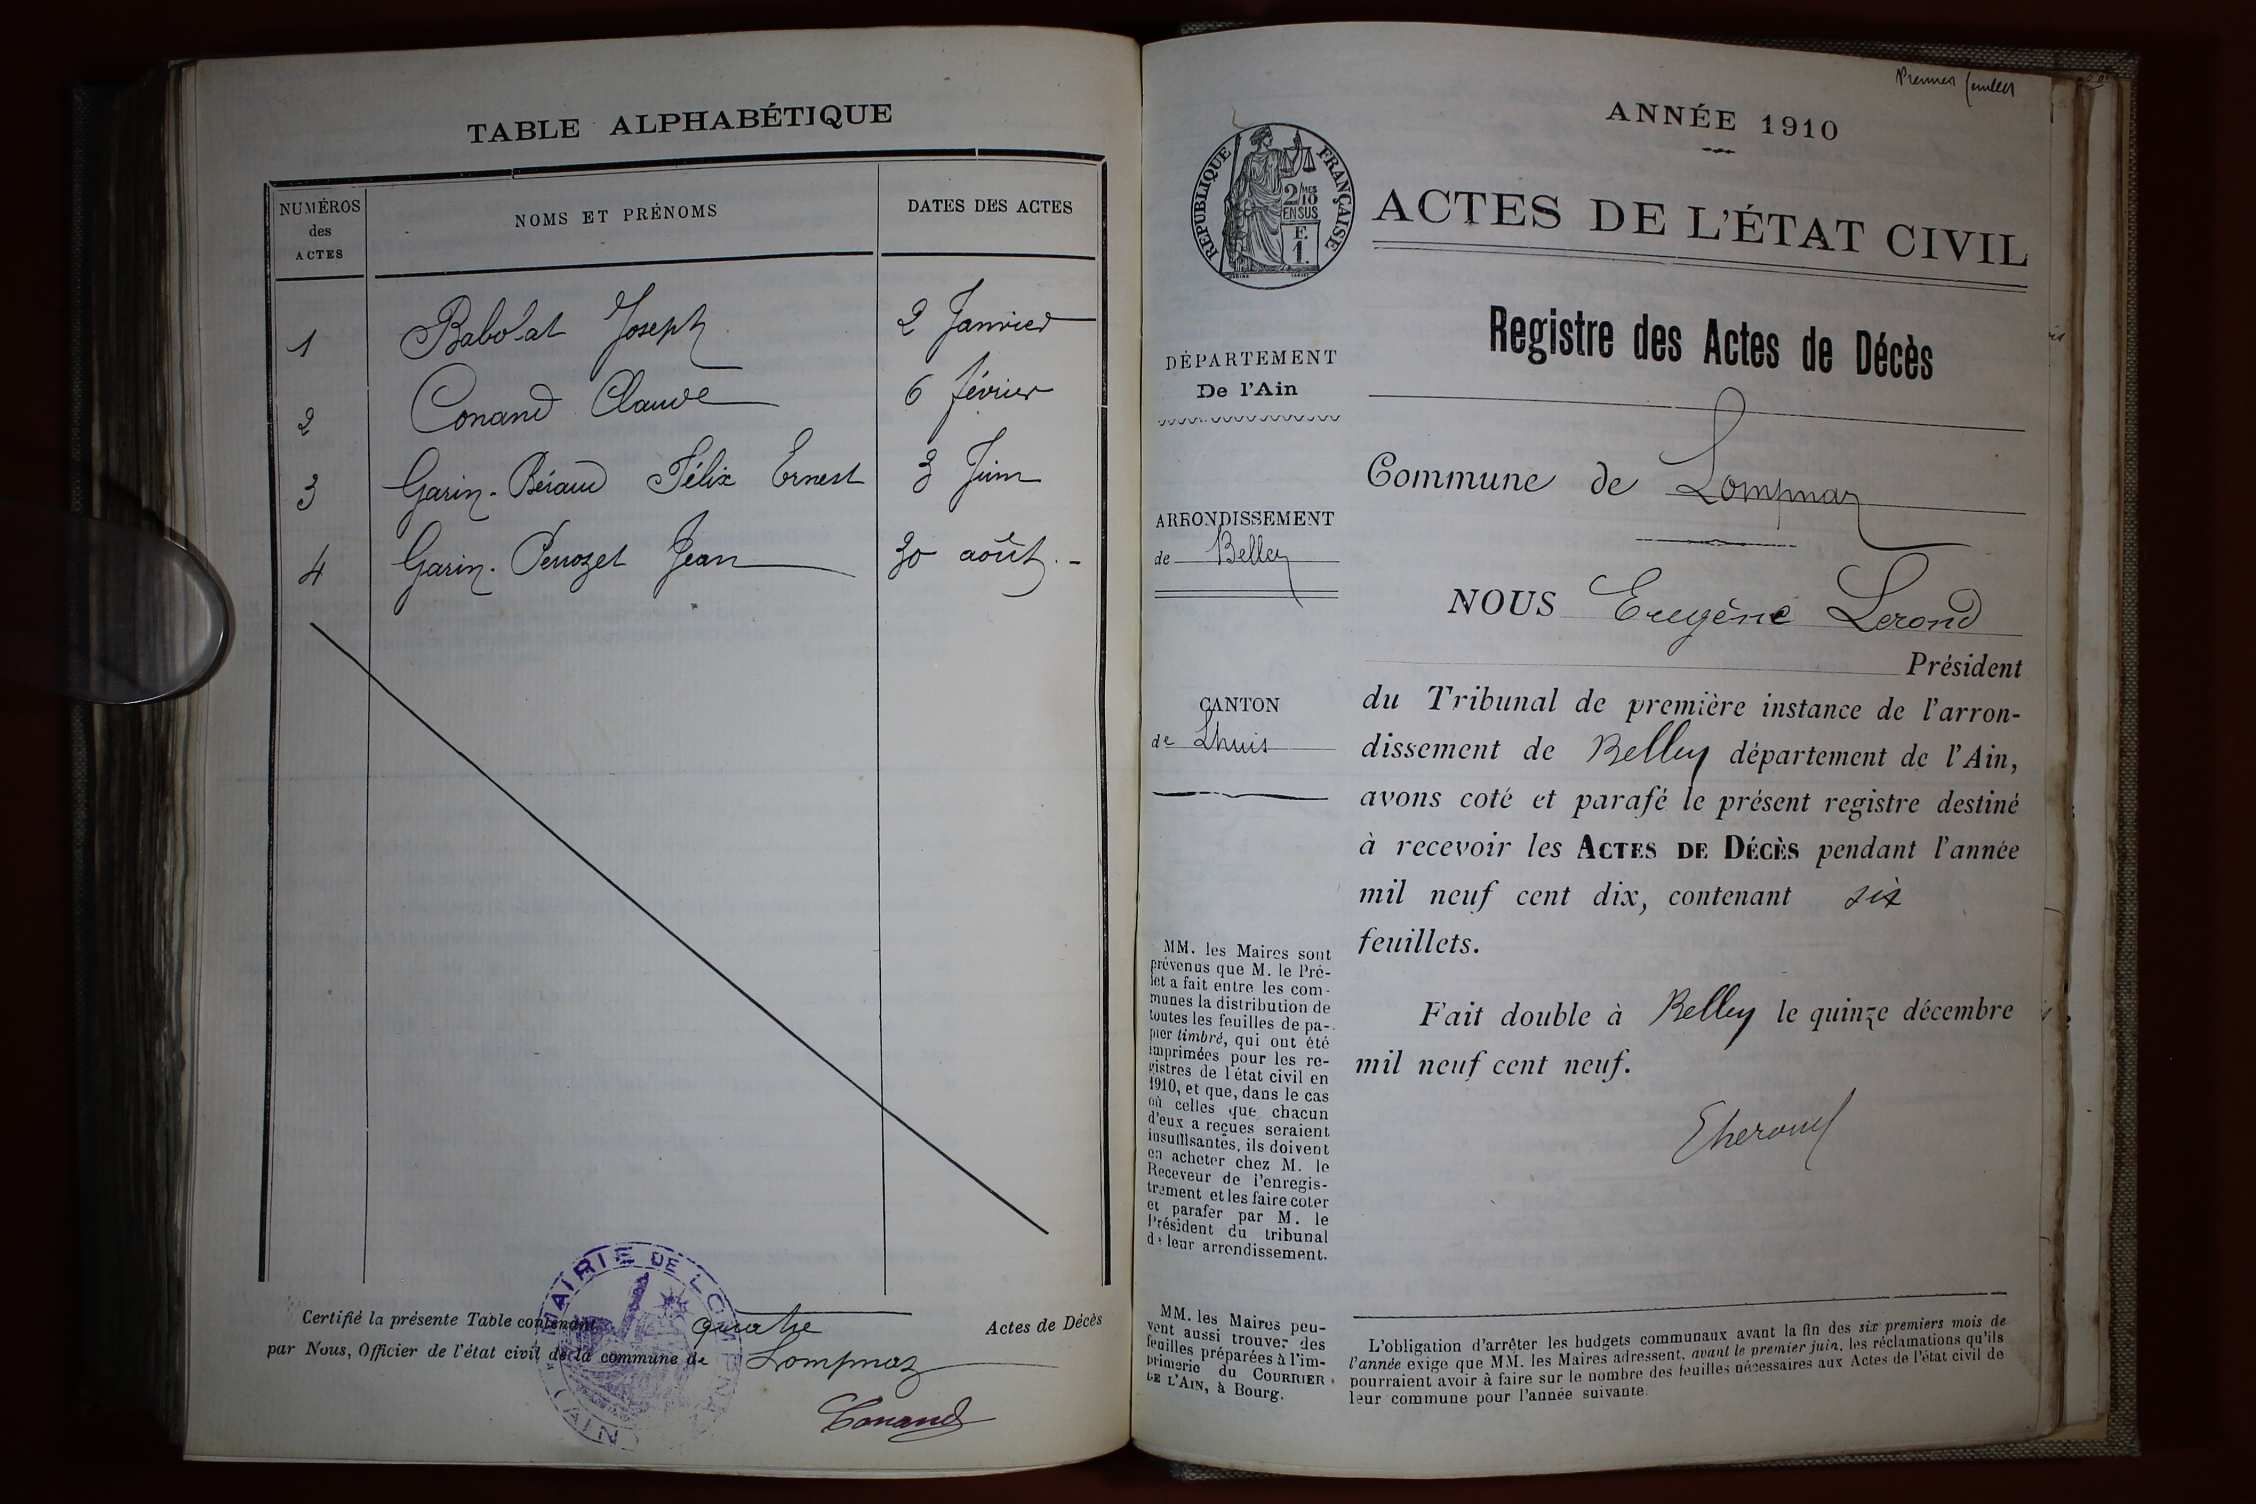 TABLE ALPHABÉTIQUE
NUMÉROS
des
ACTES
NOMS ET PRÉNOMS
DATES DES ACTES
1 Babolat Joseph 2 Janvier
2 Conand Claude 6 février
3 Garin-Béraud Félix Ernest 3 Juin
4 Garin-Perrozet Jean 30 août.-
Certifié la présente Table contenant quatre Actes de Décès
par Nous, Officier de l'état civil de la commune de Lompnaz
MAIRIE DE LOMPNAZ
(AIN)
Conand
Premier feuillet
ANNÉE 1910
RÉPUBLIQUE FRANÇAISE
2/10
EN SUS
F.
1.
ACTES DE L'ÉTAT CIVIL
Registre des Actes de Décès
DÉPARTEMENT
De l'Ain
ARRONDISSEMENT
de Belley
CANTON
de Lhuis
MM. les Maires sont
prévenus que M. le Pré-
fet a fait entre les com-
munes la distribution de
toutes les feuilles de pa-
pier timbré, qui ont été
imprimées pour les re-
gistres de l'état civil en
1910, et que, dans le cas
où celles que chacun
d'eux a reçues seraient
insuffisantes, ils doivent
en acheter chez M. le
Receveur de l'enregis-
trement et les faire coter
et parafer par M. le
Président du tribunal
de leur arrondissement.
MM. les Maires peu-
vent aussi trouver des
feuilles préparées à l'im-
primerie du COURRIER
DE L'AIN, à Bourg.
Commune de Lompnaz
NOUS Eugène Lerond
Président
du Tribunal de première instance de l'arron-
dissement de Belley département de l'Ain,
avons coté et parafé le présent registre destiné
à recevoir les ACTES DE DÉCÈS pendant l'année
mil neuf cent dix, contenant six
feuillets.
Fait double à Belley le quinze décembre
mil neuf cent neuf.
L'obligation d'arrêter les budgets communaux avant la fin des six premiers mois de
l'année exige que MM. les Maires adressent, avant le premier juin, les réclamations qu'ils
pourraient avoir à faire sur le nombre des feuilles nécessaires aux Actes de l'état civil de
leur commune pour l'année suivante.